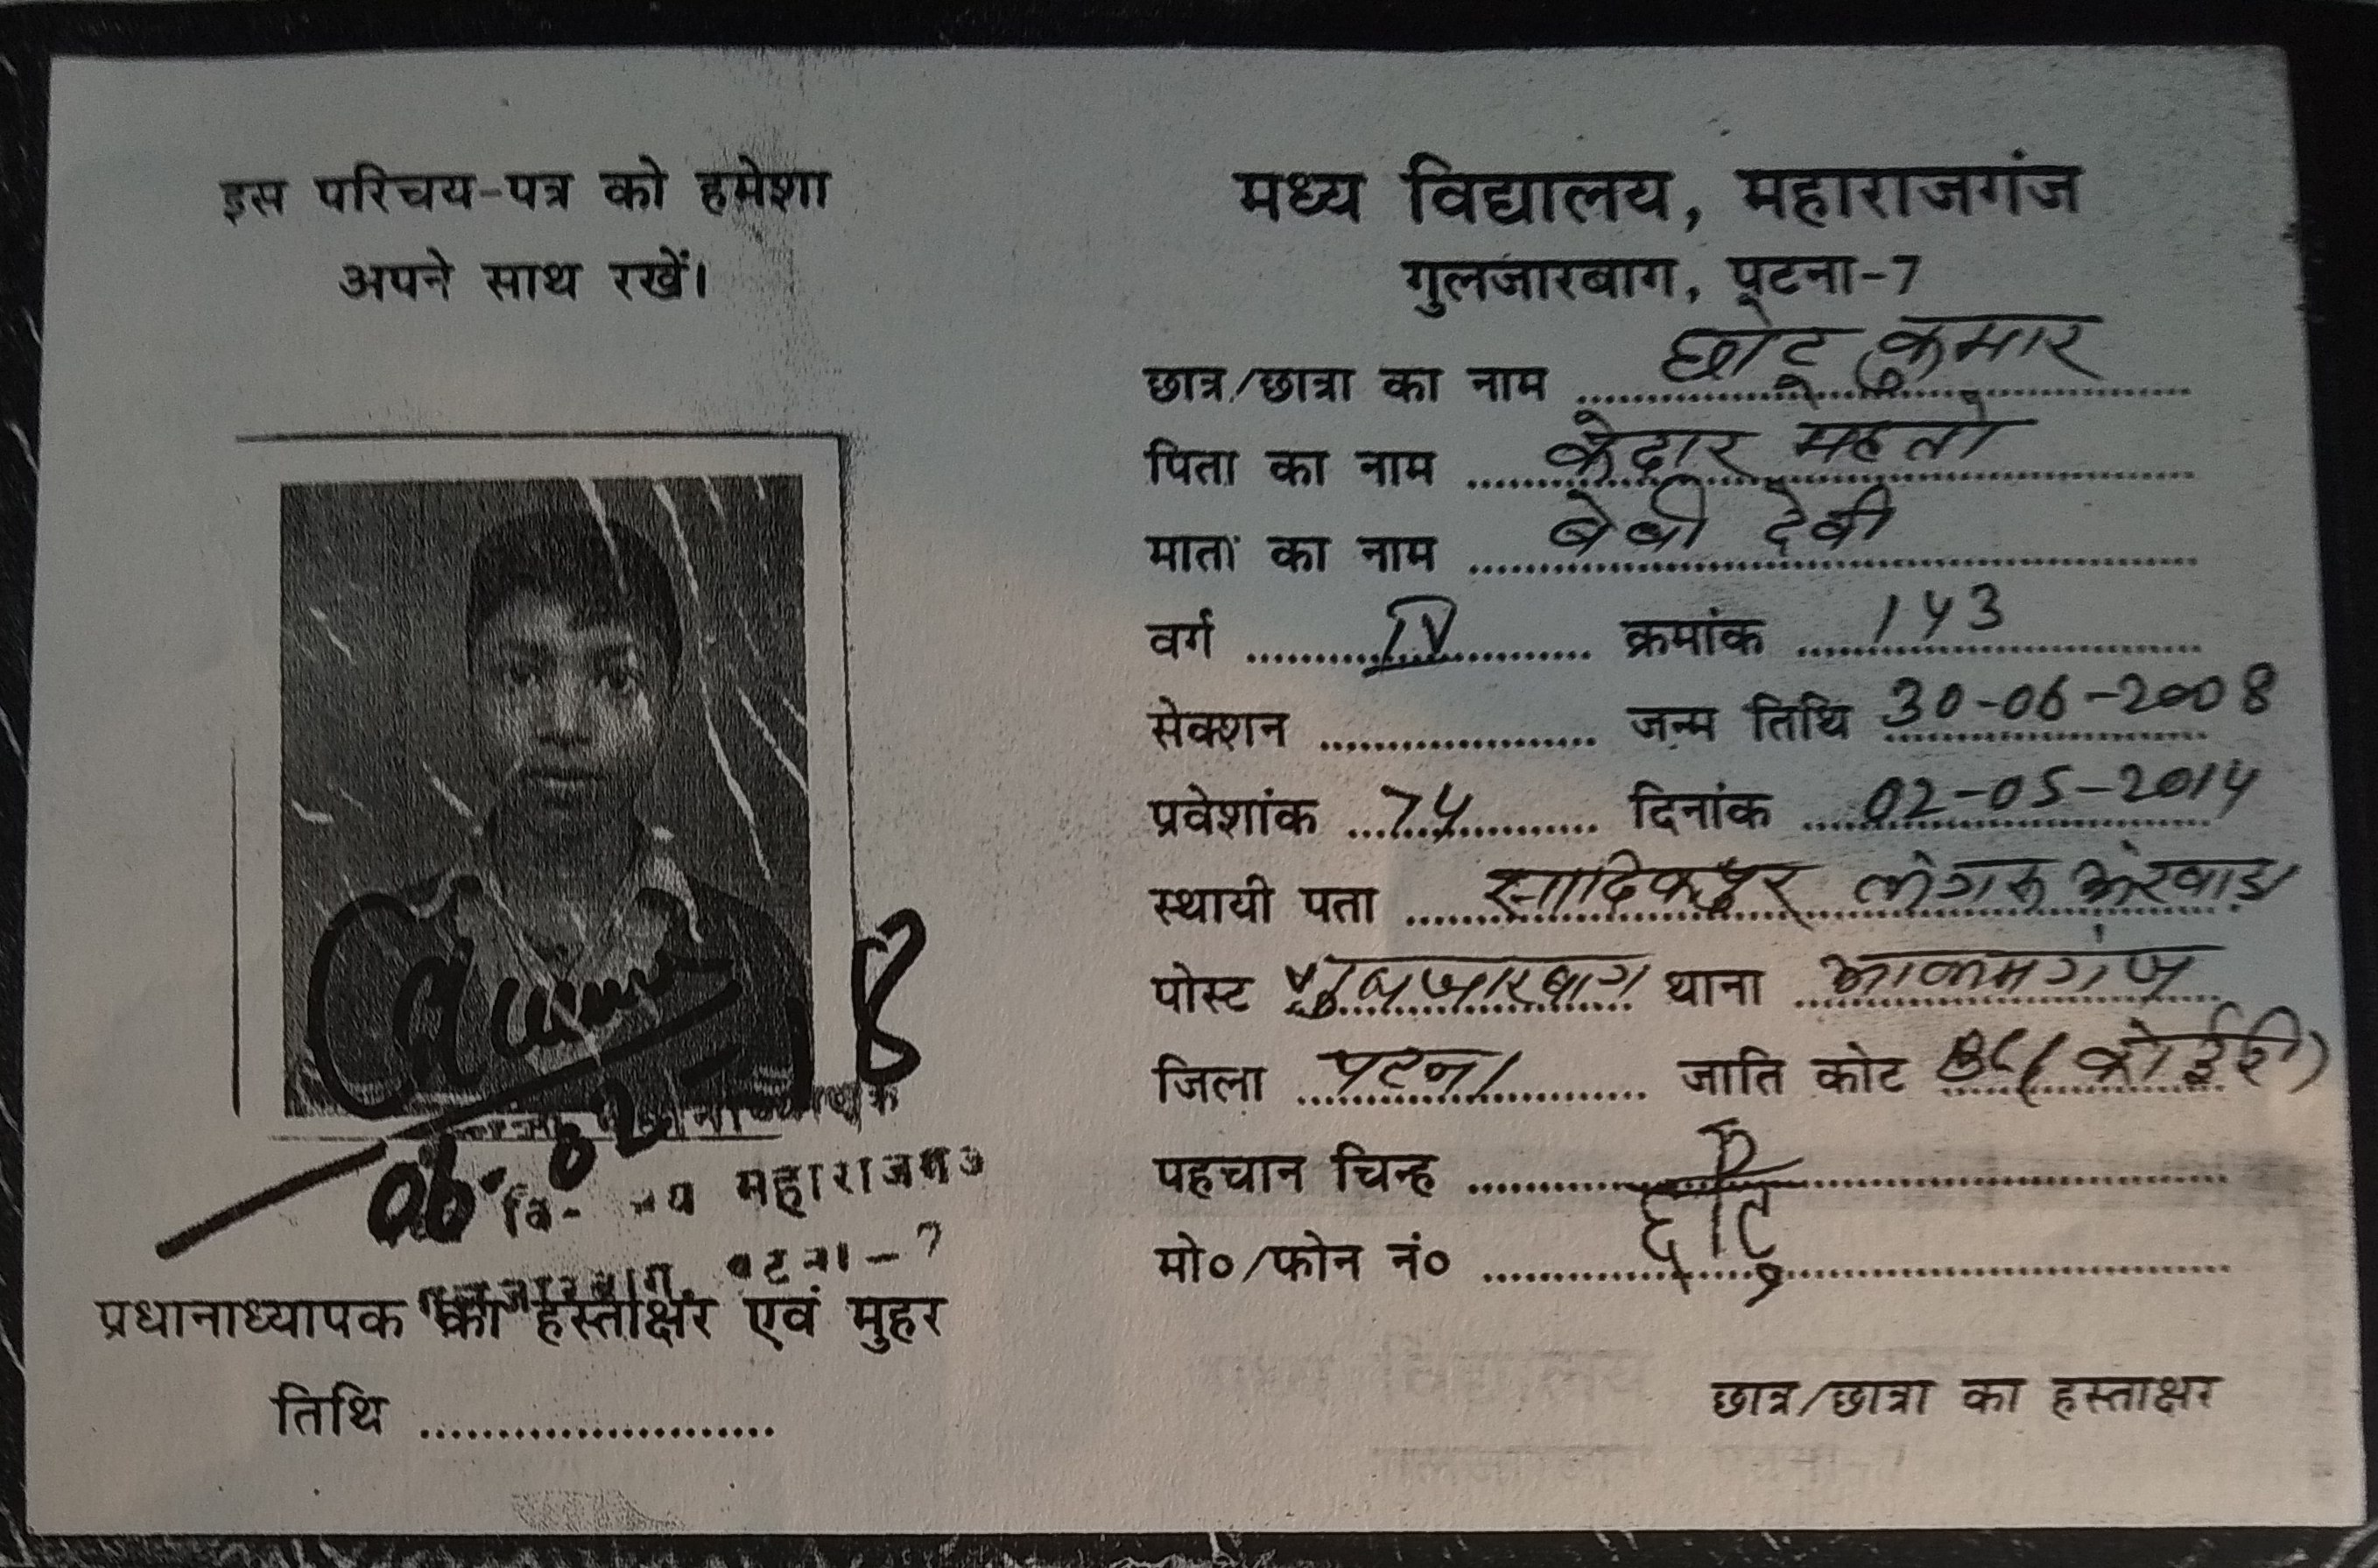 इस परिचय-पत्र को हमेशा
अपने साथ रखें।
महाराजगंज
पटना-7
06-02-18
प्रधानाध्यापक का हस्ताक्षर एवं मुहर
तिथि ........................
मध्य विद्यालय, महाराजगंज
गुलजारबाग, पटना-7
छात्र/छात्रा का नाम छोटू कुमार
पिता का नाम केदार महतो
माता का नाम बेबी देवी
वर्ग IV क्रमांक 143
सेक्शन ........................ जन्म तिथि 30-06-2008
प्रवेशांक 74 दिनांक 02-05-2014
स्थायी पता सादिकपुर
पोस्ट गुलजारबाग थाना आलमगंज
जिला पटना जाति कोट BC (कोईरी)
पहचान चिन्ह
मो०/फोन नं०
छोटू
छात्र/छात्रा का हस्ताक्षर